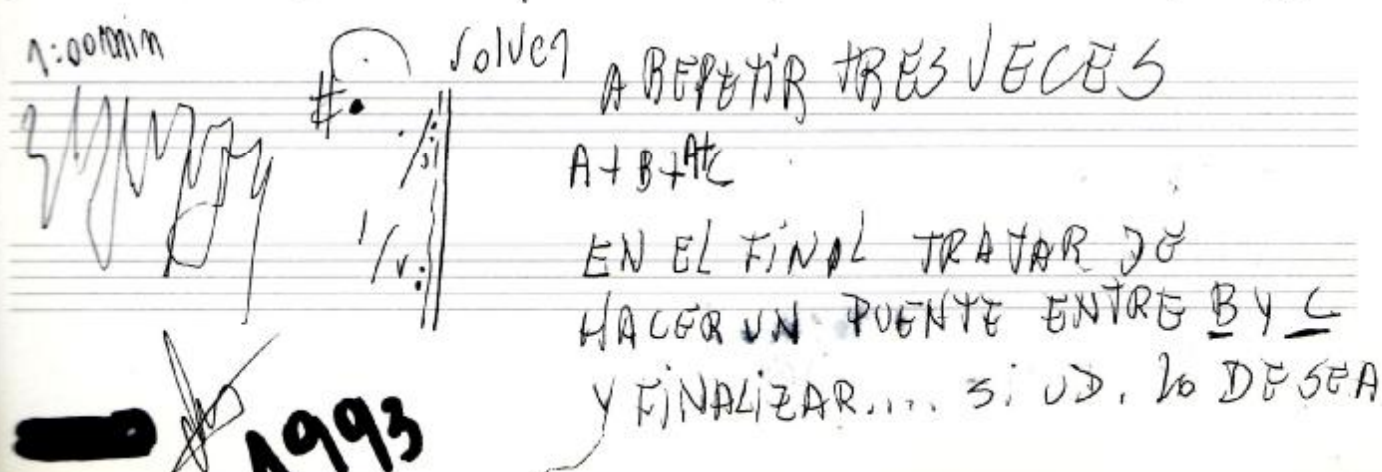 1:00 min
Volver
A REPETIR TRES VECES
A+B+A+C
EN EL FINAL TRATAR DE
HACER UN PUENTE ENTRE B Y C
Y FINALIZAR.... Si UD. lo DESEA
1993